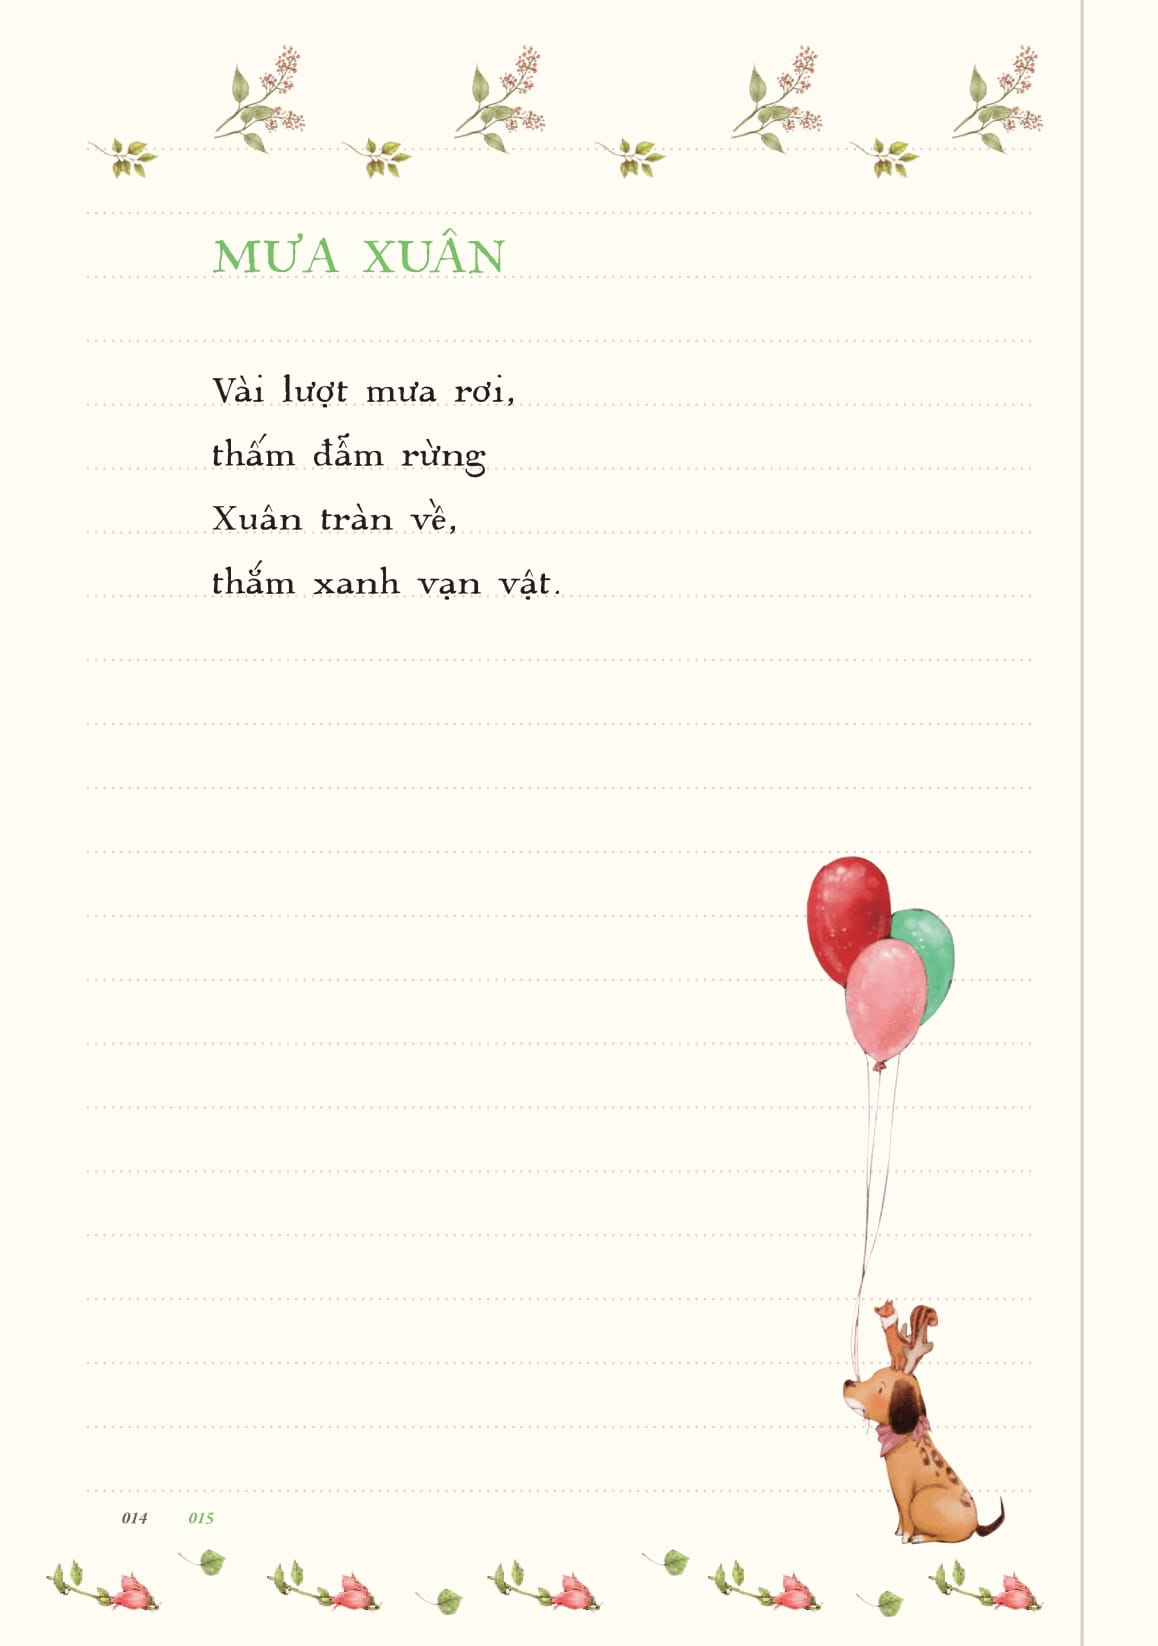 MƯA XUÂN
Vài lượt mưa rơi,
thấm đẫm rừng
Xuân tràn về,
thắm xanh vạn vật.
014 015